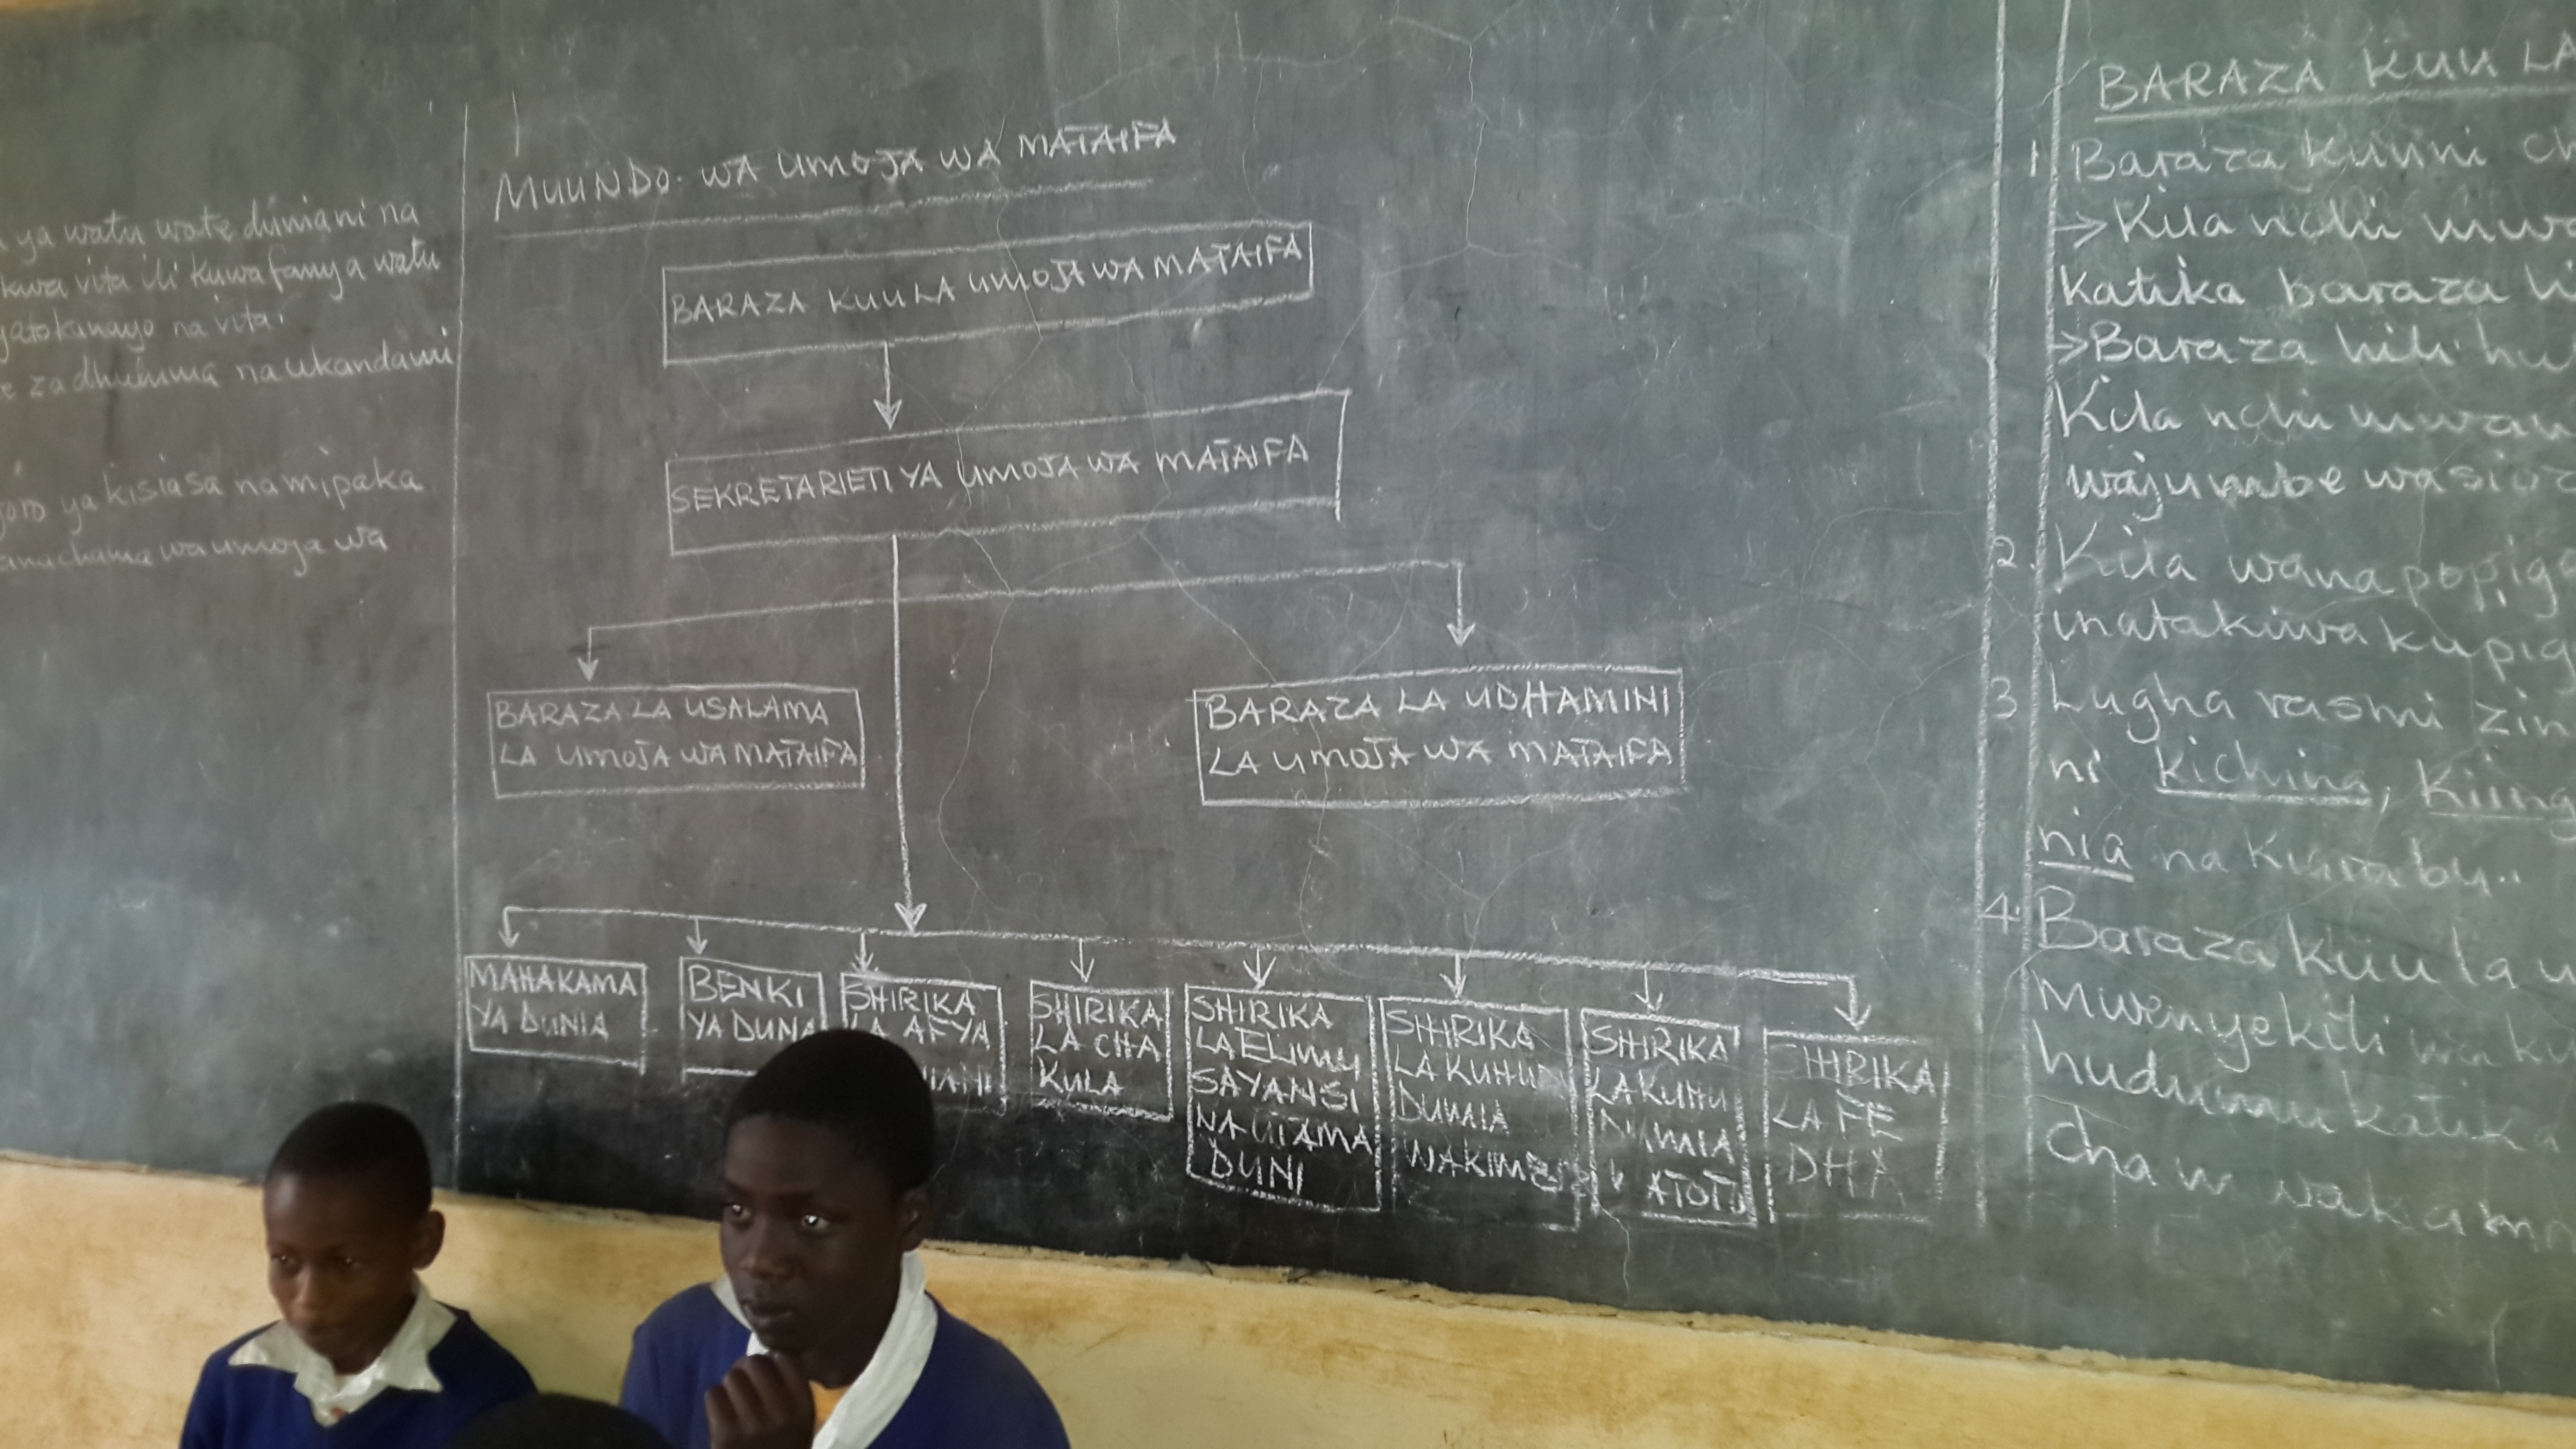 ya watu wote duniani na
kwa vita ili kuwafanya watu
yatokanayo na vita.
za dhuluma na ukandami
ya kisiasa na mipaka
wa umoja wa
MUUNDO. WA UMOJA WA MATAIFA
BARAZA KUU LA UMOJA WA MATAIFA
SEKRETARIETI YA UMOJA WA MATAIFA
BARAZA LA USALAMA
LA UMOJA WA MATAIFA
BARAZA LA UDHAMINI
LA UMOJA WA MATAIFA
MAHAKAMA
YA DUNIA
BENKI
YA DUNA
SHIRIKA
LA AFYA
SHIRIKA
LA CHA
KULA
SHIRIKA
LA ELIMU
SAYANSI
NA UTAMA
DUNI
SHIRIKA
LA KUHU
DUMIA
WAKIMBIZI
SHIRIKA
LA KUHU
DUMIA
WATOTO
SHIRIKA
LA FE
DHA
BARAZA KUU LA
1 Baraza kuu ni
→ Kila nchi
katika baraza
→ Baraza hili
Kila nchi
wajumbe
2. Kila wanapopiga
inatakiwa
3 Lugha rasmi
ni kichina,
nia na kiarabu..
4. Baraza kuu la
Mwenyekiti
hudumu katika
cha